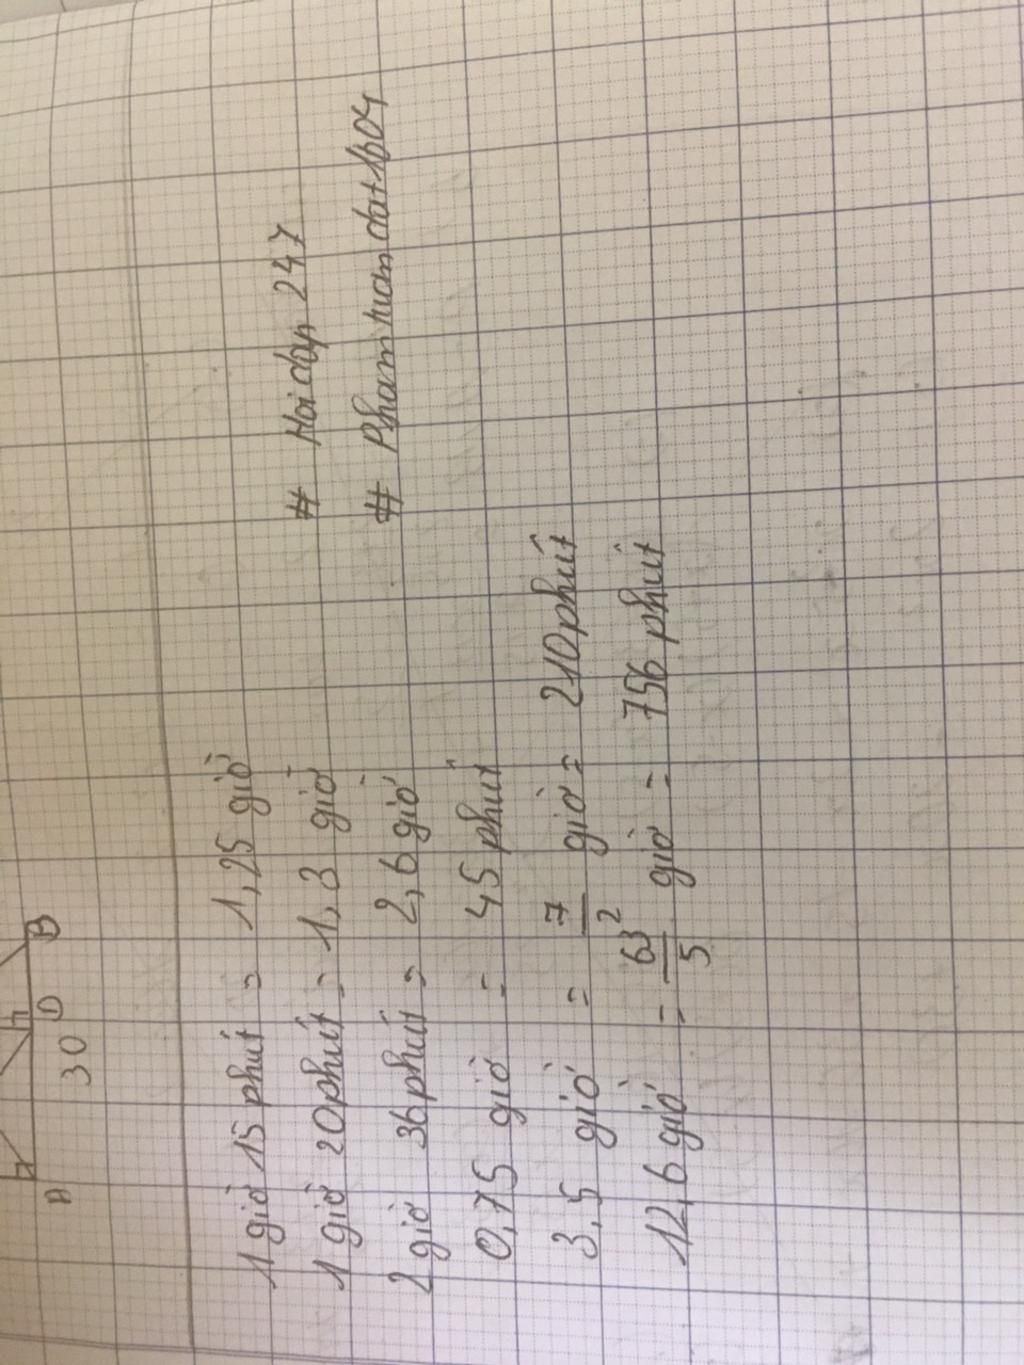 A 30 D B
1 giờ 15 phút = 1,25 giờ
1 giờ 20 phút = 1,3 giờ
# Hoidap 247
2 giờ 36 phút = 2,6 giờ
# Phamhuandat1604
0,75 giờ = 45 phút
3,5 giờ = 7/2 giờ = 210 phút
12,6 giờ = 63/5 giờ = 756 phút